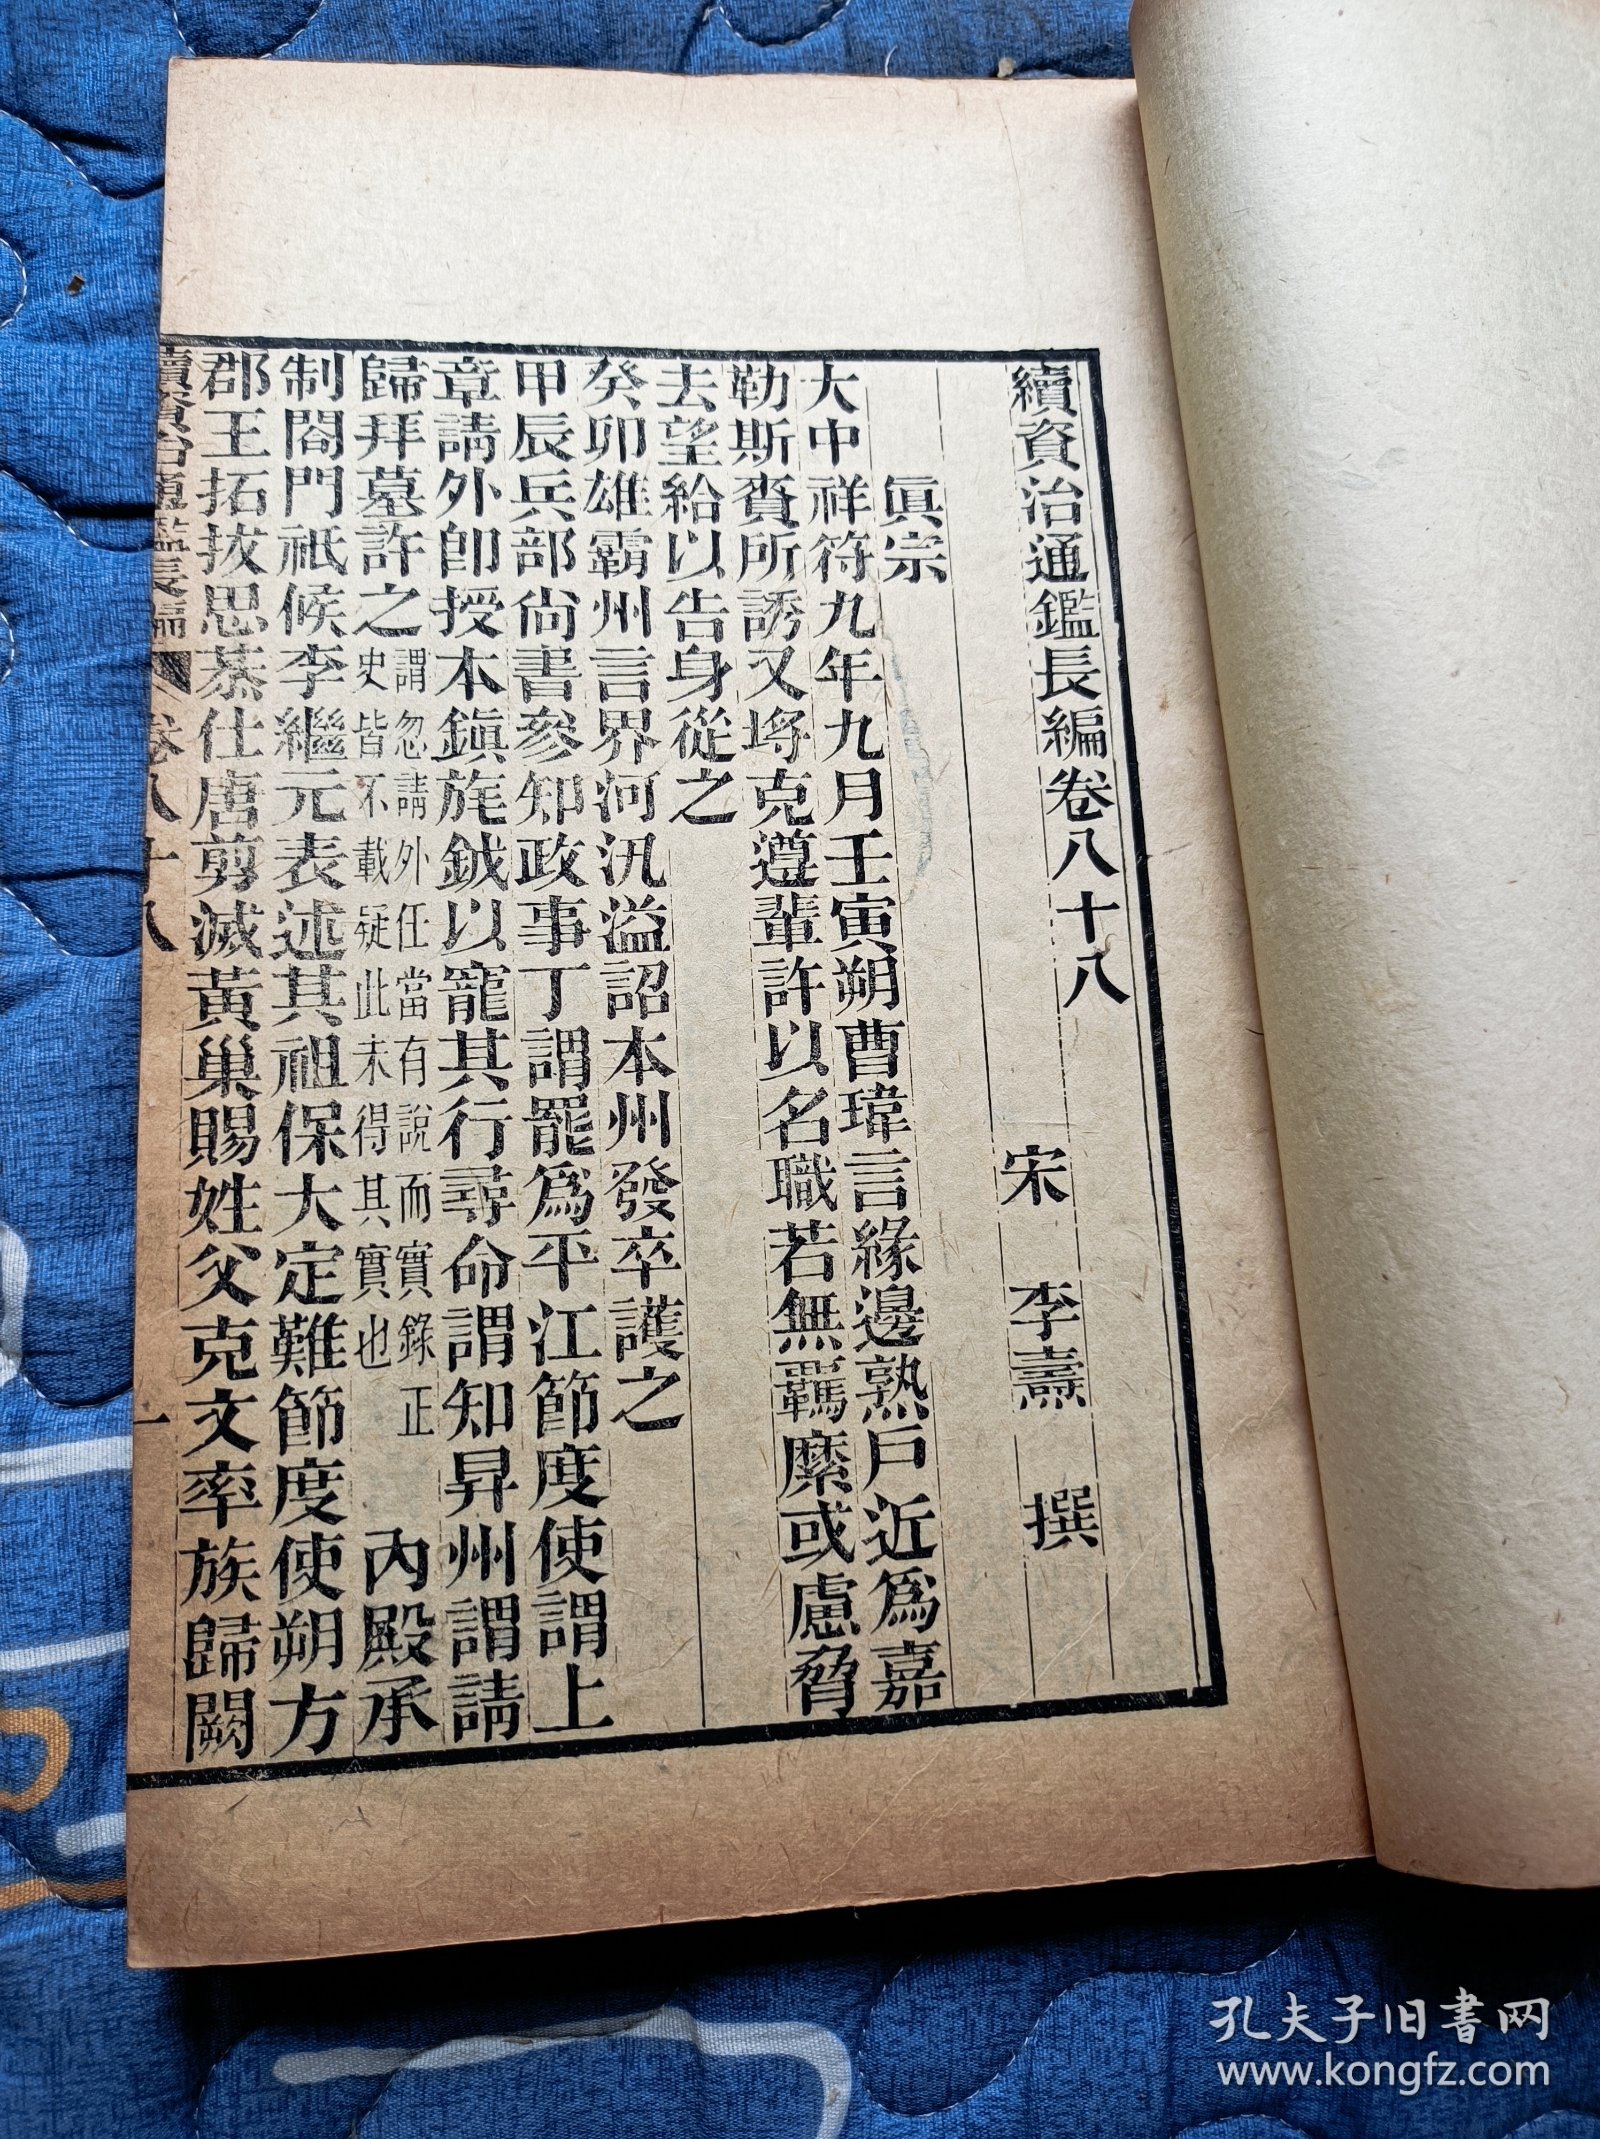 續資治通鑑長編卷八十八
宋 李燾 撰
眞宗
大中祥符九年九月壬寅朔曹瑋言緣邊熟戶近爲嘉
勒斯賚所誘又將克遵輩許以名職若無羈縻或慮脅
去望給以告身從之
癸卯雄霸州言界河汎溢詔本州發卒護之
甲辰兵部尚書參知政事丁謂罷爲平江節度使謂上
章請外卽授本鎭旄鉞以寵其行尋命謂知昇州謂請
歸拜墓許之謂忽請外任當有說而實錄正史皆不載疑此未得其實也 內殿承
制閤門祗候李繼元表述其祖保大定難節度使朔方
郡王拓拔思恭仕唐剪滅黃巢賜姓父克文率族歸闕
續資治通鑑長編 卷八十八 一
孔夫子旧书网
www.kongfz.com